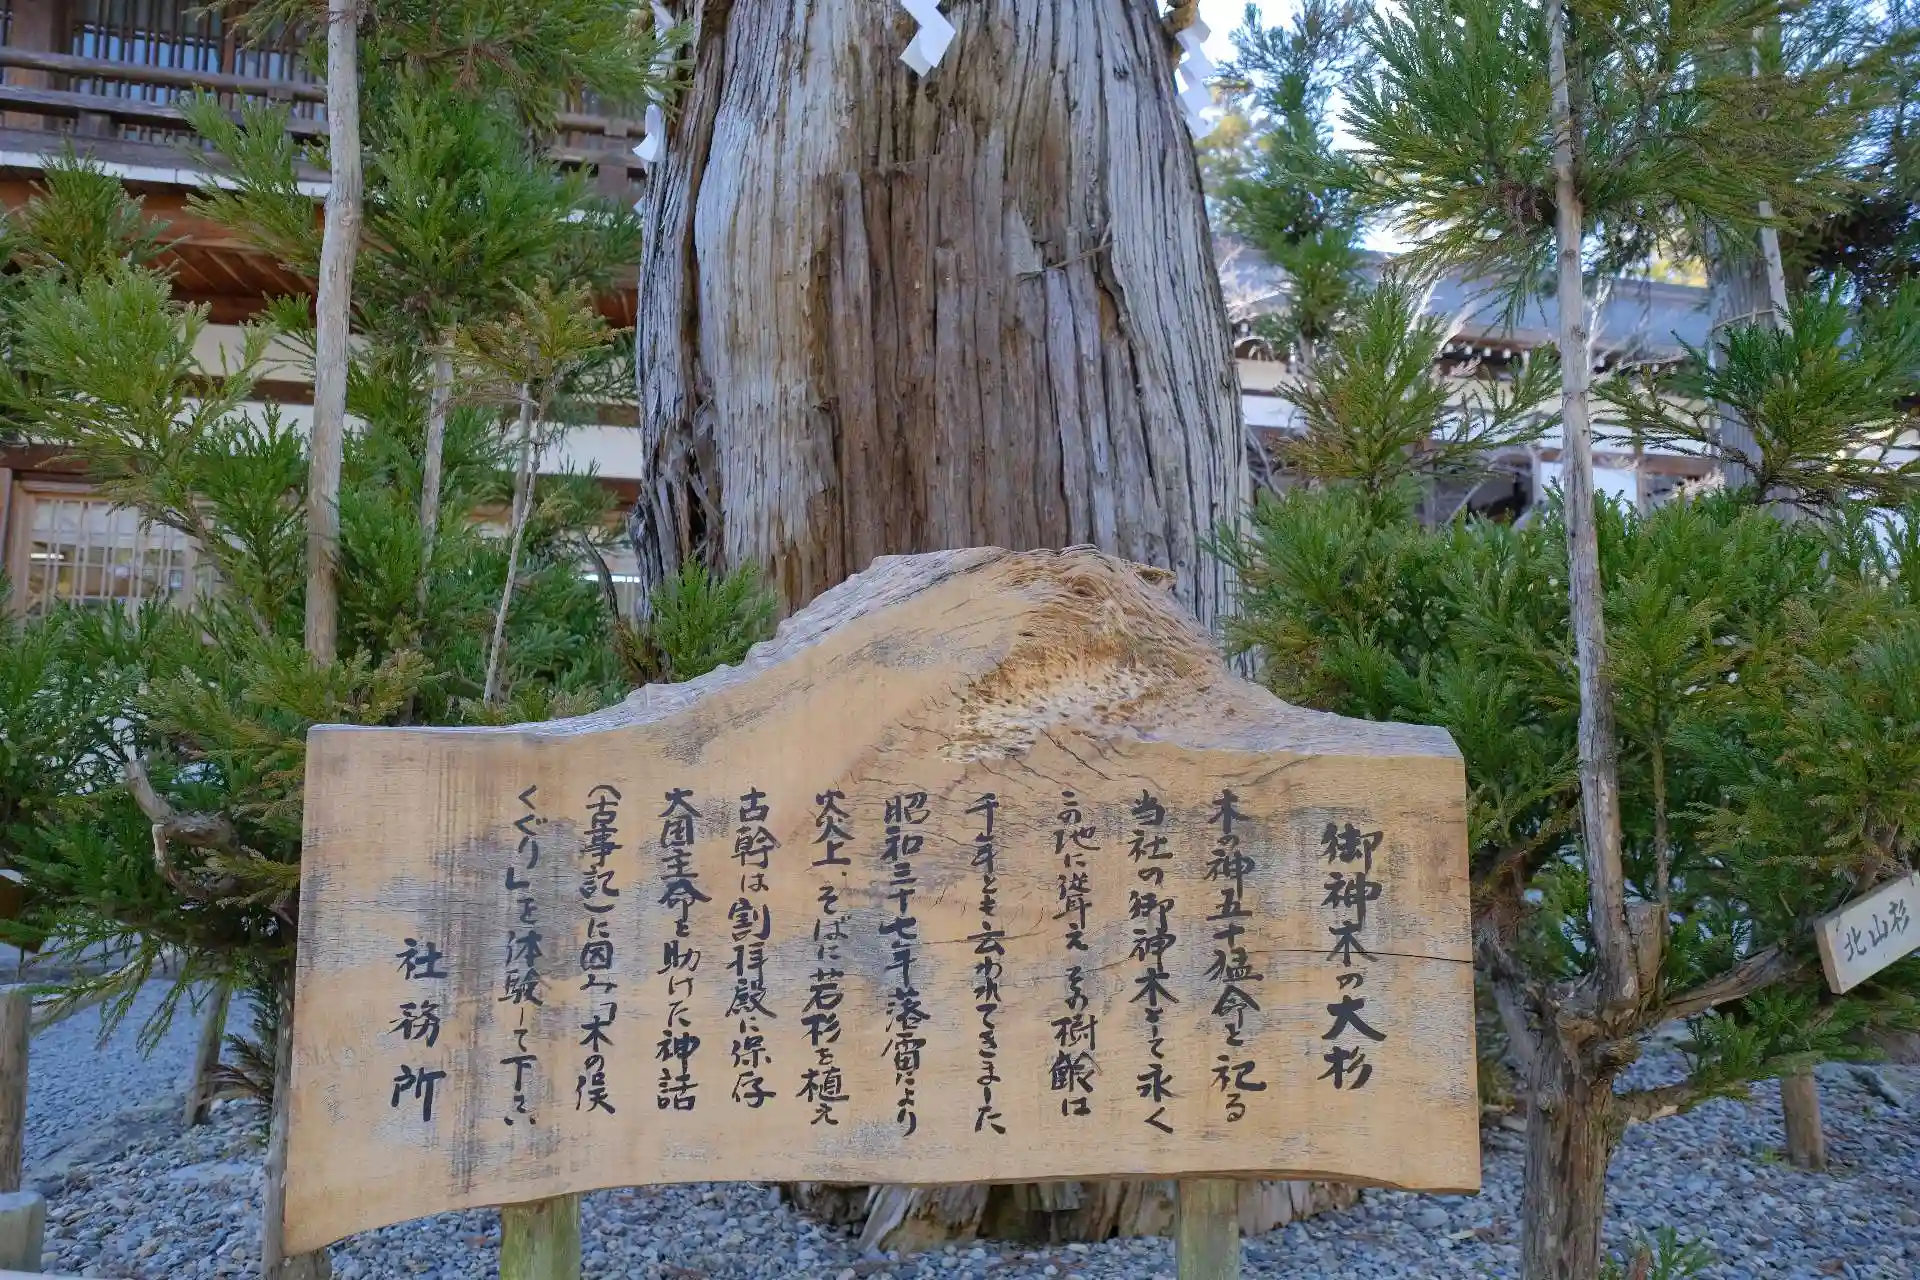 御神木の大杉
木の神五十猛命を祀る
当社の御神木として永く
この地に聳え その樹齢は
千年とも云われてきました
昭和三十七年落雷により
炎上、そばに若杉を植え
古幹は割拝殿に保存
大国主命を助けた神話
(古事記)に因み「木の俣
くぐり」を体験して下さい
社務所
北山杉